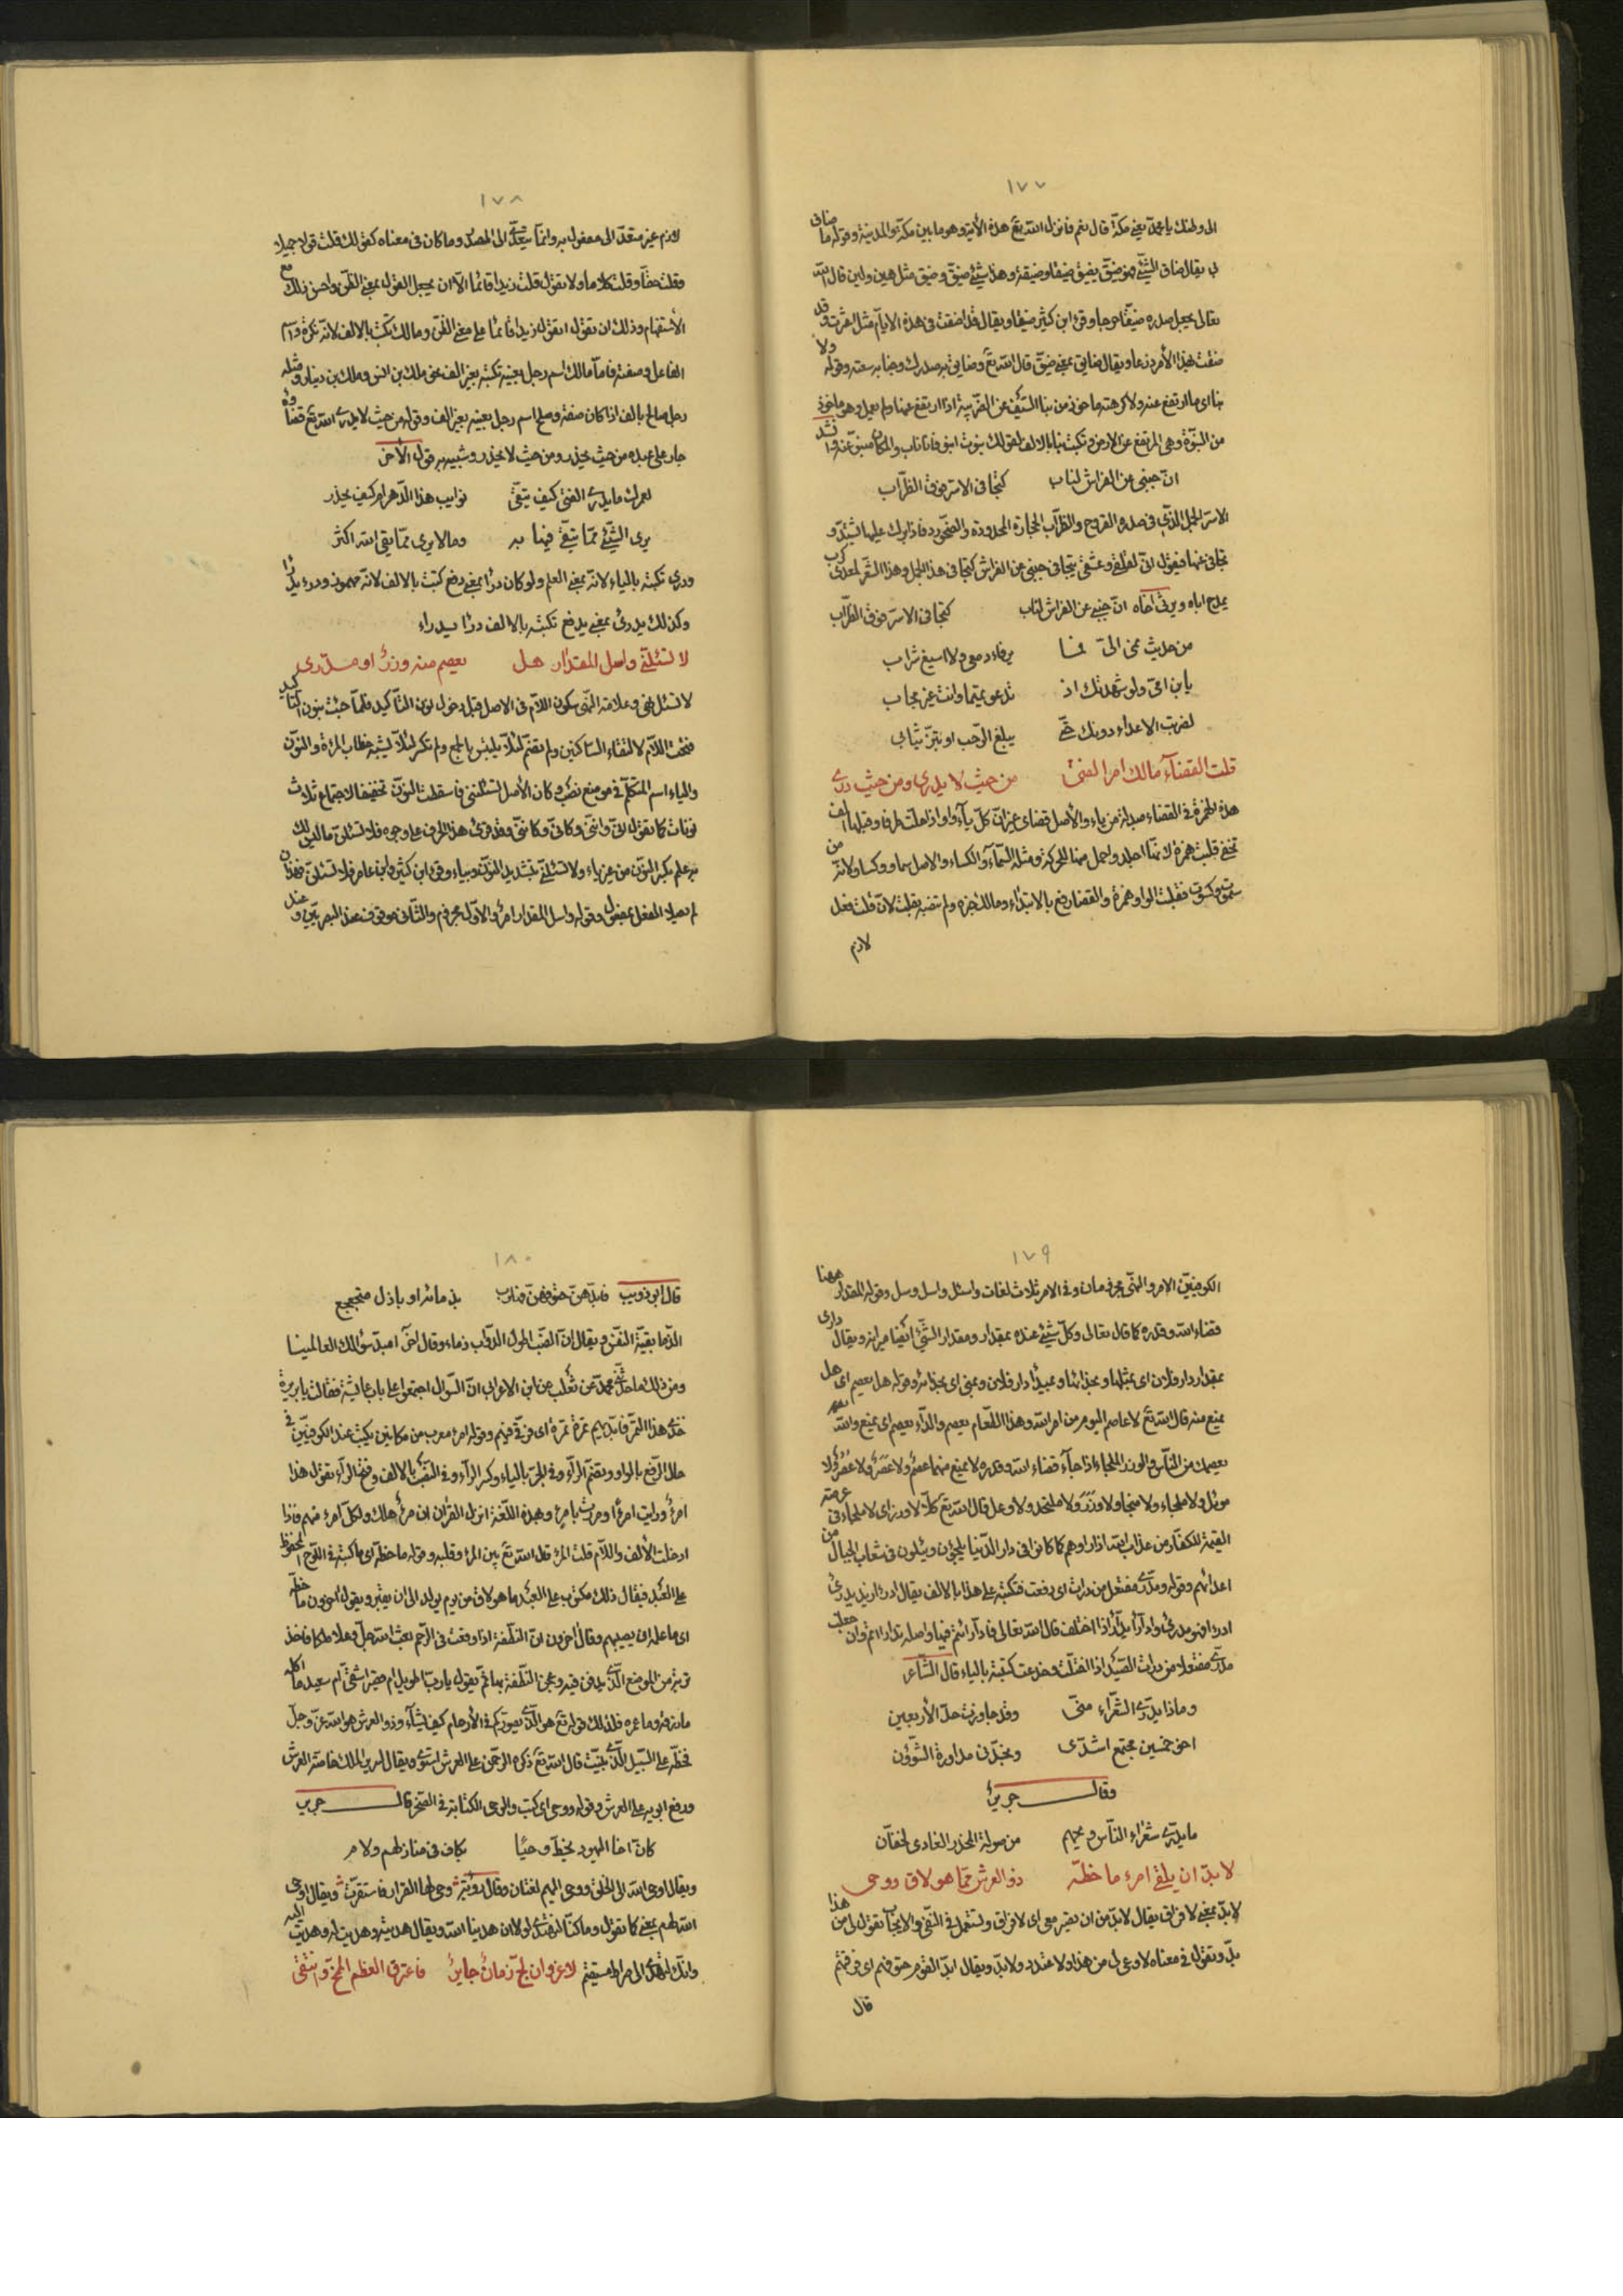 ١٧٧
الى وطنك يا محمد يعني مكة قال نعم فانزل الله تع هذه الأية وهو ما بين مكة والمدينة وقوله ما ضاق
بي يقال ضاق الشئ فهو ضيق يضيق ضيقا وضيقة وهذا شئ ضيق وضيق مثل هين ولين قال الله
تعالى يجعل صدره ضيقا حرجا وقرء ابن كثير ضيقا ويقال قد اضقت في هذه الايام مثل اعسرت وقد
ضقت بهذا الأمر ذرعا ويقال ضايق بمعنى ضيق قال الله تع وضايق به صدرك وجنابه سعته وقوله ولا
نبا اى ما ارتفع عنه ولا كرهته ماخوذ من نبا السيف عن الضريبة اذا ارتفع عنها ولم يعمل وهو ماخوذ
من النبوة وهى المرتفع عن الارض وتكتب نبا بالالف لقولك نبوت انبو فانا ناب والمكان منبو عنه وانشد
ان جنبي عن الفراش لناب كتجافى الاسر فوق الظراب
الاسر الجمل الذى في صدره القروح والظراب الحجارة المحدودة والصخور فاذا برك عليها اشتد و
تجافى عنها فيقول انى لقلقى وعشقى يتجافى جنبي عن الفراش كتجافى هذا الجمل وهذا الشعر لمعدى كرب
يمدح اباه ويرثى اخاه ان جنبي عن الفراش لناب كتجافى الاسر فوق الظراب
من حديث نمى الىّ فما يرقاء دمعى ولا اسيغ شراب
يابن امى ولو شهدتك اذ تدعو تميما وانت غير مجاب
لضربت الاعداء دونك حتى يبلغ الرحب او تبز ثيابى
قلت القضاء مالك امر الفتى من حيث لا يدرى ومن حيث درى
هذه الهمزة في القضاء مبدلة من ياء والأصل قضاى غير ان كل ياء وواو اذا وقعت طرفا وقبلها الف
تخفى قلبت همزة لانها اجلد واحمل منها للحركة ومثله السماء والكساء والاصل سماو وكساو لانه من
سموت وكسوت فقلبت الواو همزة والقضاء رفع بالابتداء ومالك خبره ولم تنصبه بقلت لان قلت فعل
لازم
١٧٨
لازم غير متعد الى مفعول به وانما يتعدى الى المصدر وما كان في معناه كقولك قلت قولا جميلا
وقلت حقا وقلت كلاما ولا تقول قلت زيدا قائما الا ان يجعل القول بمعنى الظن واحسن ذلك مع
الأستفهام وذلك ان تقول اتقول زيدا قائما على معنى الظن ومالك تكتب بالالف لانه نكرة واسم
الفاعل وصفة فاما مالك اسم رجل بعينه تكتبه بغير الف نحو ملك بن انس وملك بن دينار ومثله
رجل صالح بالف اذا كان صفة وصلح اسم رجل بعينه بغير الف وقوله من حيث لا يدرى الله تع قضاؤه
جار على عبده من حيث يحذر ومن حيث لا يحذر وشبيه به قول الأخر
لعمرك ما يدرى الفتى كيف يتقى نوايب هذا الدهر ام كيف يحذر
يرى الشئ مما يتقى فيهابه وما لا يرى مما يقى الله اكثر
ودرى تكتبه بالياء لانه بمعنى العلم ولو كان درأ بمعنى دفع كتبت بالالف لانه مهموز ودرء يدرأ
وكذلك يدرئ بمعنى يدفع تكتبه بالالف درأ يدراء
لا تسئلنى واسل المقدار هل يعصم منه وزر او مدرى
لا تسئل نهى وعلامة النهى سكون اللام في الاصل قبل دخول نون التأكيد فلما جئت بنون التأكيد
فتحت اللام لالتقاء الساكنين ولم تضم لئلا يلتبس بالجمع ولم تكسر لئلا يشبه خطاب المرأة والنون
والياء اسم المتكلم في موضع نصب وكان الأصل لا تسئلننى فاسقطت النون تخفيفا لاجتماع ثلاث
نونات كما تقول انى واننى وكانى وكاننى وقد قرئ هذا الحرف على وجوه فلا تسئلن ما ليس لك
به علم بكسر النون من غير ياء ولا تسئلنى بتشديد النون وبياء وقرء ابن كثير وابن عامر فلا تسئلن
لم تعد الفعل بمفعول وقوله واسل المقدار امر والاول مجزوم والثانى موقوف عند البصريين وعند
١٧٩
الكوفيين الامر والنهى مجزومان وفي الامر ثلاث لغات واسئل واسل وسل وقوله المقدار ههنا
قضاء الله وقدره كما قال تعالى وكل شئ عنده بمقدار ومقدار الشئ ايضا ميزانه ويقال دارى
بمقدار دار فلان اى بمثلها وبحذائها وبميداء دار فلان وبمنى اى بحذائه وقوله هل يعصم اى هل
يمنع منه قال الله تع لا عاصم اليوم من امر الله وهذا الطعام يعصم والدواء يعصم اى يمنع والله
يعصمك من الناس والوزر الملجاء اذا جاء قضاء الله وقدره لا يمنع منهما عصم ولا عصر ولا عصر ولا
موئل ولا ملجاء ولا منجا ولا وزر ولا ملتحد ولا وعل قال الله تع كلا لا وزر اى لا ملجاء في عرصة
القيمة للكفار من عذاب الله اذا راوهم كما كانوا في دار الدنيا يلجئون ويئلون في شعاب الجبال من
اعدائهم وقوله ومدرى مفتعل من درات اى دفعت فتكتبه على هذا بالالف يقال ادرأ زيد يدرئ
ادراء افهو مدرئ وادارأ يدارأ اذا اختلف قال الله تعالى فادارأتم فيها واصله تدارأتم وان جعلت
مدرى مفتعلا من دريت الصيد اذا اختلت وخدعت كتبته بالياء قال الشاعر
وماذا يدرى الشعراء منى وقد جاوزت حد الأربعين
اخو خمسين مجتمع اشدى ونجذنى مداورة الشؤون
وقال جرير
ما يدرى شعراء الناس ويحهم من صولة المخدر العادى بخفان
لا بد ان يلقى امرء ما خطه ذو العرش مما هو لاق ووحى
لابد بمعنى لا فراق يقال لابد من ان يصير معى اى لا فراق وتستعمل في النفى والايجاب تقول لى من هذا
بد وتقول في معناه لا وعى لى من هذا ولا عندد ولابد ويقال ابد القوم حقوقهم اى فرقهم
قال
١٨٠
قال ابو ذويب فابدهن حتوفهن فهارب بذمائه او بارك متجعجع
الذما بقية النفس ويقال ان الضب اطول الدواب ذماء وقال اخر امبد سؤالك العالمينا
ومن ذلك ما حدثنى محمد عن ثعلب عن ابن الاعرابى ان السؤال اجتمعوا على باب عايشة فقالت يا بريرة
خذى هذا التمر فابديهم تمرة تمرة اى فرقى فيهم وقوله امرء معرب من مكانين يكتب عند الكوفيين في
حال الرفع بالواو وتضم الراء وفي الجر بالياء وكسر الراء وفي النصب بالالف وفتح الراء تقول هذا
امرؤ ورايت امرءا ومررت بامرئ وبهذه اللغة نزل القرآن ان امرؤ هلك ولكل امرء منهم فاذا
ادخلت الألف واللام قلت المرء قال الله تع بين المرء وقلبه وقوله ما خطه اى ما كتبه في اللوح المحفوظ
على العبد فيقال ذلك مكتوب على العبد ما هو لاق من يوم يولد الى ان يقبر ويقول آخرون ما خطه
اى ما علمه ان يصيبهم وقال اخرون ان النطفة اذا وقعت في الرحم بعث الله جل وعلا ملكا فاخذ
تربة من الموضع الذى يدفن فيه وعجن النطفة بها ثم يقول يا رب اطويل ام قصير اشقى ام سعيد ما اكله
ما رزقه وما عمره فلذلك قوله تع هو الذى يصوركم في الأرحام كيف يشاء وذو العرش هو الله عز وجل
فخطه على السبيل الذى بينت قال الله تع ذكره الرحمن على العرش استوى ويقال لسرير الملك خاصة العرش
ورفع ابويه على العرش وقوله ووحى اى كتب والوحى الكتابة في الصخر قال جرير
كان اخا اليهود يخط وحيا بكاف في منازلهم ولام
ويقال اوحى الله الى الخلق ووحى اليهم لغتان وقال رؤبة وحى لها القرار فاستقرت ويقال اوحى
الله لهم بمعنى كما تقول وما كنا لنهتدى لولا ان هدينا الله ويقال هديته وهديت له وهديت اليه
وانك لتهدى الى صراط مستقيم لا غرو ان لج زمان جاير فاعترق العظم الممخ وانتقى